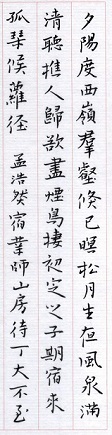 夕陽度西嶺羣壑倏已暝松月生夜凉風泉滿
清聽樵人歸欲盡煙鳥棲初定之子期宿來
孤琴候蘿徑 孟浩然宿業師山房待丁大不至